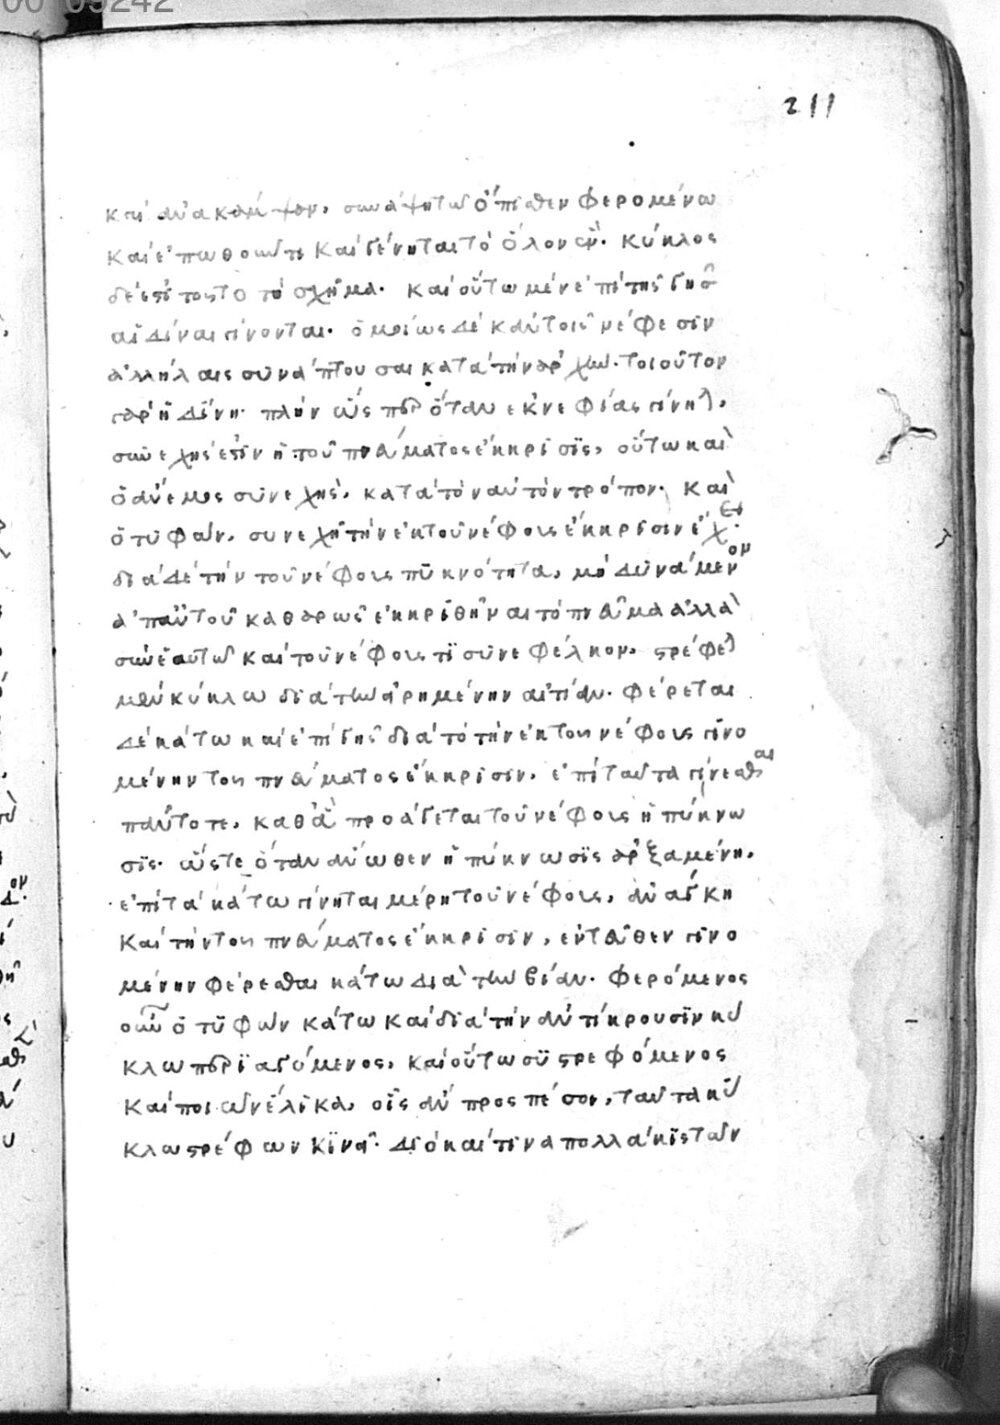 00 05242
211
καὶ ἀνακάμψαν, συνάψῃ τῶ ὄπισθεν φερομένω
καὶ ἐπωθοῦντι καὶ γένηται τὸ ὅλον κύκλος
δέ ἐστι τοῦτο τὸ σχῆμα. καὶ οὕτω μὲν ἐπὶ τῆς γῆς
αἱ δίναι γίνονται. ὁμοίως δὲ κἀν τοῖς νέφεσιν
ἀλλήλαις συνάπτουσαι κατὰ τὴν ἀρχήν. τοιοῦτον
γὰρ ἡ δίνη. πλὴν ὥσπερ ὅταν ἐκνεφίας γίνηται,
συνεχής ἐστιν ἡ τοῦ πνεύματος ἔκκρισις, οὕτω καὶ
ὁ ἄνεμος συνεχής, κατὰ τὸν αὐτὸν τρόπον. καὶ
ὁ τυφών, συνεχῆ τὴν ἐκ τοῦ νέφους ἔκκρισιν ἔχει.
διὰ δὲ τὴν τοῦ νέφους πυκνότητα, μὴ δυνάμενον
ἀπ αὐτοῦ καθαρῶς ἐκκριθῆναι τὸ πνεῦμα ἀλλὰ
σὺν ἑαυτῶ καὶ τοῦ νέφους τι συνεφέλκον, στρέφεται
μὲν κύκλω διὰ τὴν εἰρημένην αἰτίαν. φέρεται
δὲ κάτω καὶ ἐπὶ γῆς διὰ τὸ τὴν ἐκ τοῦ νέφους γινο
μένην τοῦ πνεύματος ἔκκρισιν, ἐπὶ ταῦτα γίνεσθαι
πάντοτε, καθ ἃ προάγεται τοῦ νέφους ἡ πύκνω
σις. ὥστε ὅταν ἄνωθεν ἡ πύκνωσις ἀρξαμένη,
ἐπὶ τὰ κάτω γίνηται μέρη τοῦ νέφους, ἀνάγκη
καὶ τὴν τοῦ πνεύματος ἔκκρισιν, ἐντεῦθεν γινο
μένην φέρεσθαι κάτω διὰ τὴν βίαν. φερόμενος
οὖν ὁ τυφὼν κάτω καὶ διὰ τὴν ἀντίκρουσιν κύ
κλω περιαγόμενος, καὶ οὕτω συστρεφόμενος
καὶ ποιῶν ἕλικα, οἷς ἂν προσπέσοι, ταῦτα κύ
κλω στρέφων κινεῖ. διὸ καί τινα πολλάκις τῶν